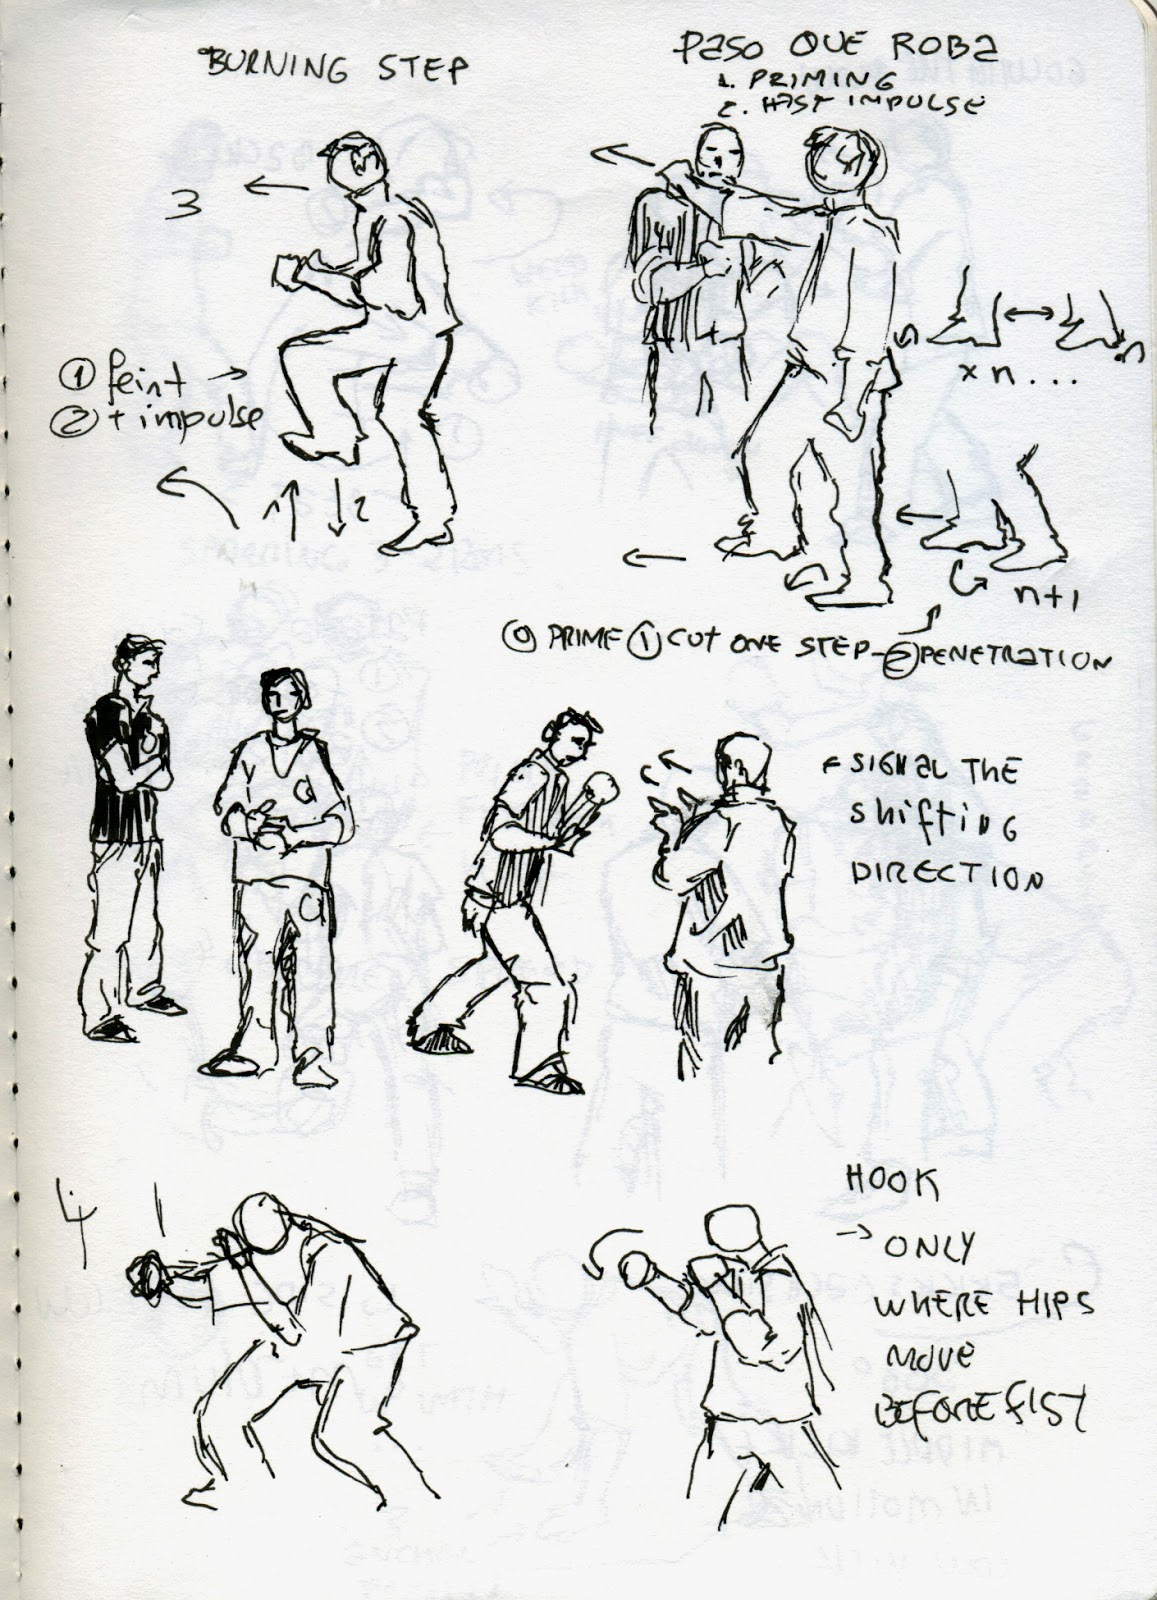 BURNING STEP
3
① feint →
② + impulse
1
2
PASO QUE ROBA
1. PRIMING
2. HAST IMPULSE
x n...
n+1
⓪ PRIME ① CUT ONE STEP - ② PENETRATION
SIGNAL THE
Shifting
DIRECTION
4
HOOK
→ ONLY
WHERE HIPS
MOVE
BEFORE FIST